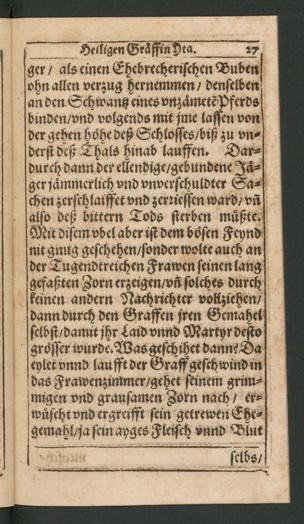 Heiligen Gräffin Yta. 27
ger / als einen Ehebrecherischen Buben
ohn allen verzug hernemmen / denselben
an den Schwantz eines vnzämetẽ Pferds
binden / vnd volgends mit jme lassen von
der gehen höhe deß Schlosses / biß zu vn-
derst deß Thals hinab lauffen. Dar-
durch dann der ellendige / gebundene Jä-
ger jämmerlich vnd vnverschuldter Sa-
chen zerschlaiffet vnd zerriessen ward / vñ
also deß bittern Tods sterben müßte.
Mit disem vbel aber ist dem bösen Feynd
nit gnug geschehen / sonder wolte auch an
der Tugendtreichen Frawen seinen lang
gefaßten Zorn erzeigen / vñ solches durch
keinen andern Nachrichter vollziehen /
dann durch den Graffen jren Gemahel
selbst / damit jhr Laid vnnd Martyr desto
grösser wurde. Was geschihet dann? Da
eylet vnnd laufft der Graff geschwind in
das Frawenzimmer / gehet seinem grim-
migen vnd grausamen Zorn nach / er-
wüscht vnd ergreifft sein getrewen Ehe-
gemahl / ja sein ayges Fleisch vnnd Blut
selbs /